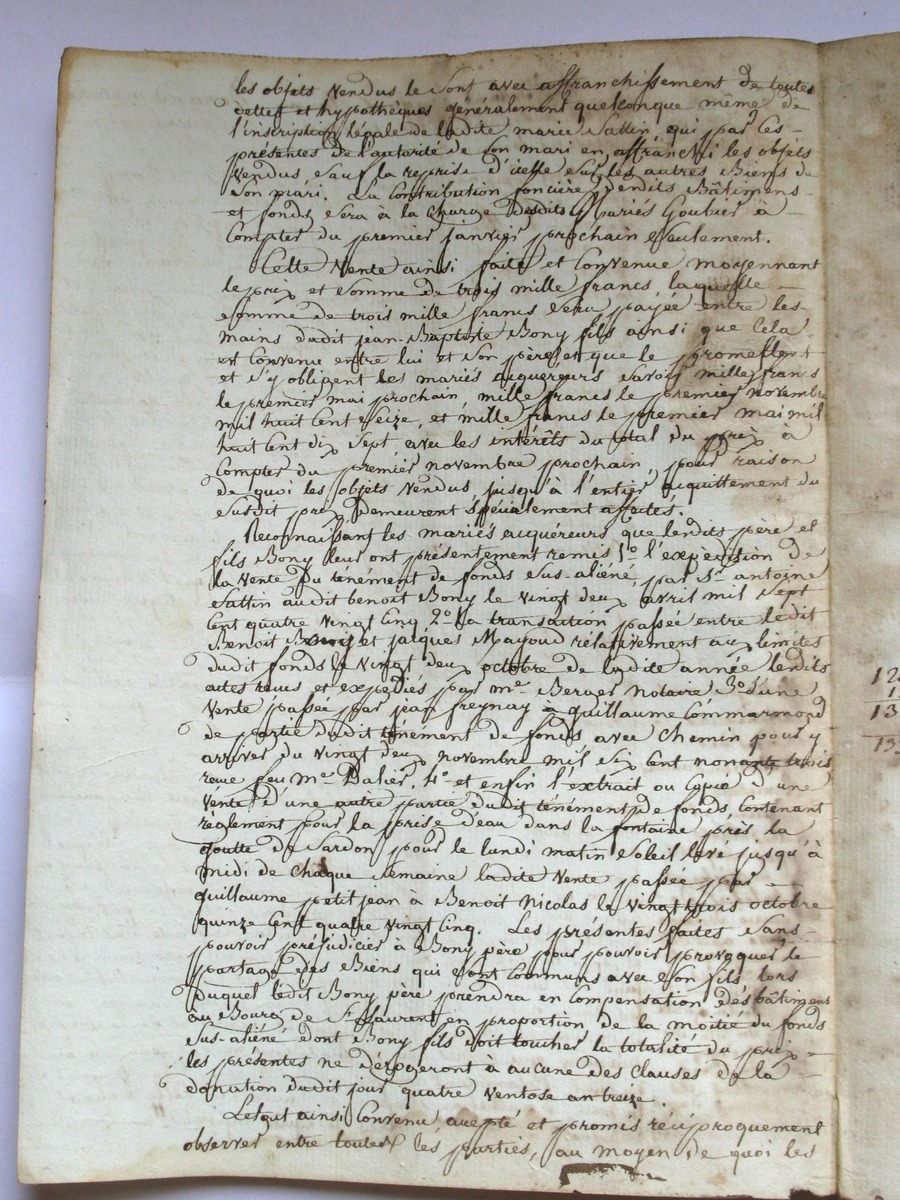 les objets vendus le sont avec affranchissement de toutes
dettes et hypothèques généralement quelconque même de
l'inscription légale de ladite marie Sattin, qui par ces
présentes de l'autorité de son mari en affranchi les objets
vendus, sauf la reprise d'icelle sur les autres Biens de
son mari. La Contribution foncière desdits Bâtimens
et fonds sera à la charge desdits Mariés Goubier à
Compter du premier janvier prochain seulement.
Cette vente ainsi faite et Convenue moyennant
le prix et somme de trois mille francs laquelle
somme de trois mille francs sera payée entre les
mains dudit jean-Baptiste Bony fils ainsi que Cela
est Convenu entre lui et son père, et que le promettent
et s'y obligent les mariés acquéreurs savoir mille francs
le premier mai prochain, mille francs le premier novembre
mil huit Cent seize, et mille francs le premier mai mil
huit Cent dix sept avec les intérêts du total du prix à
Compter du premier novembre prochain, pour raison
de quoi les objets vendus, jusqu'à l'entier acquittement du
susdit prix Demeurent spécialement affectés.
Reconnaissant les mariés acquéreurs que lesdits père et
fils Bony leur ont présentement remis 1o l'expédition de
la vente du ténément de fonds sus-aliéné, par Sr antoine
Sattin audit benoit Bony le vingt deux avril mil sept
Cent quatre vingt Cinq 2o la transaction passée entre ledit
Benoit Bony et jacques Mayoud rélativement aux limites
dudit fonds le vingt deux octobre de ladite année lesdits
actes reçus et expédiés par me Berger notaire 3o d'une
vente passée par jean freynay à guillaume Commarmond
de partie dudit ténément de fonds avec chemin pour y
arriver du vingt deux novembre mil six Cent nonante trois
reçue feu me Dalier, 4o et enfin l'extrait ou Copie d'une
vente d'une autre partie dudit ténément de fonds, Contenant
règlement pour la prise d'eau dans la fontaine près la
goutte de Sardon pour le lundi matin soleil levé jusqu'à
midi de chaque semaine ladite vente passée par
guillaume petit jean à Benoit Nicolas le vingt trois octobre
quinze Cent quatre vingt Cinq. Les présentes faites sans
pouvoir préjudicier à Bony père pour pouvoir provoquer le
partage des Biens qui sont Communs avec son fils lors
duquel ledit Bony père prendra en Compensation des bâtimens
au Bourg de St Laurent en proportion de la moitié du fonds
sus-aliéné dont Bony fils doit toucher la totalité du prix
les présentes ne dérogeront à aucune des clauses de la
donation dudit jour quatre ventose an treize.
Lequt ainsi Convenu accepté et promis réciproquement
observer entre toutes les parties, au moyen de quoi les
13